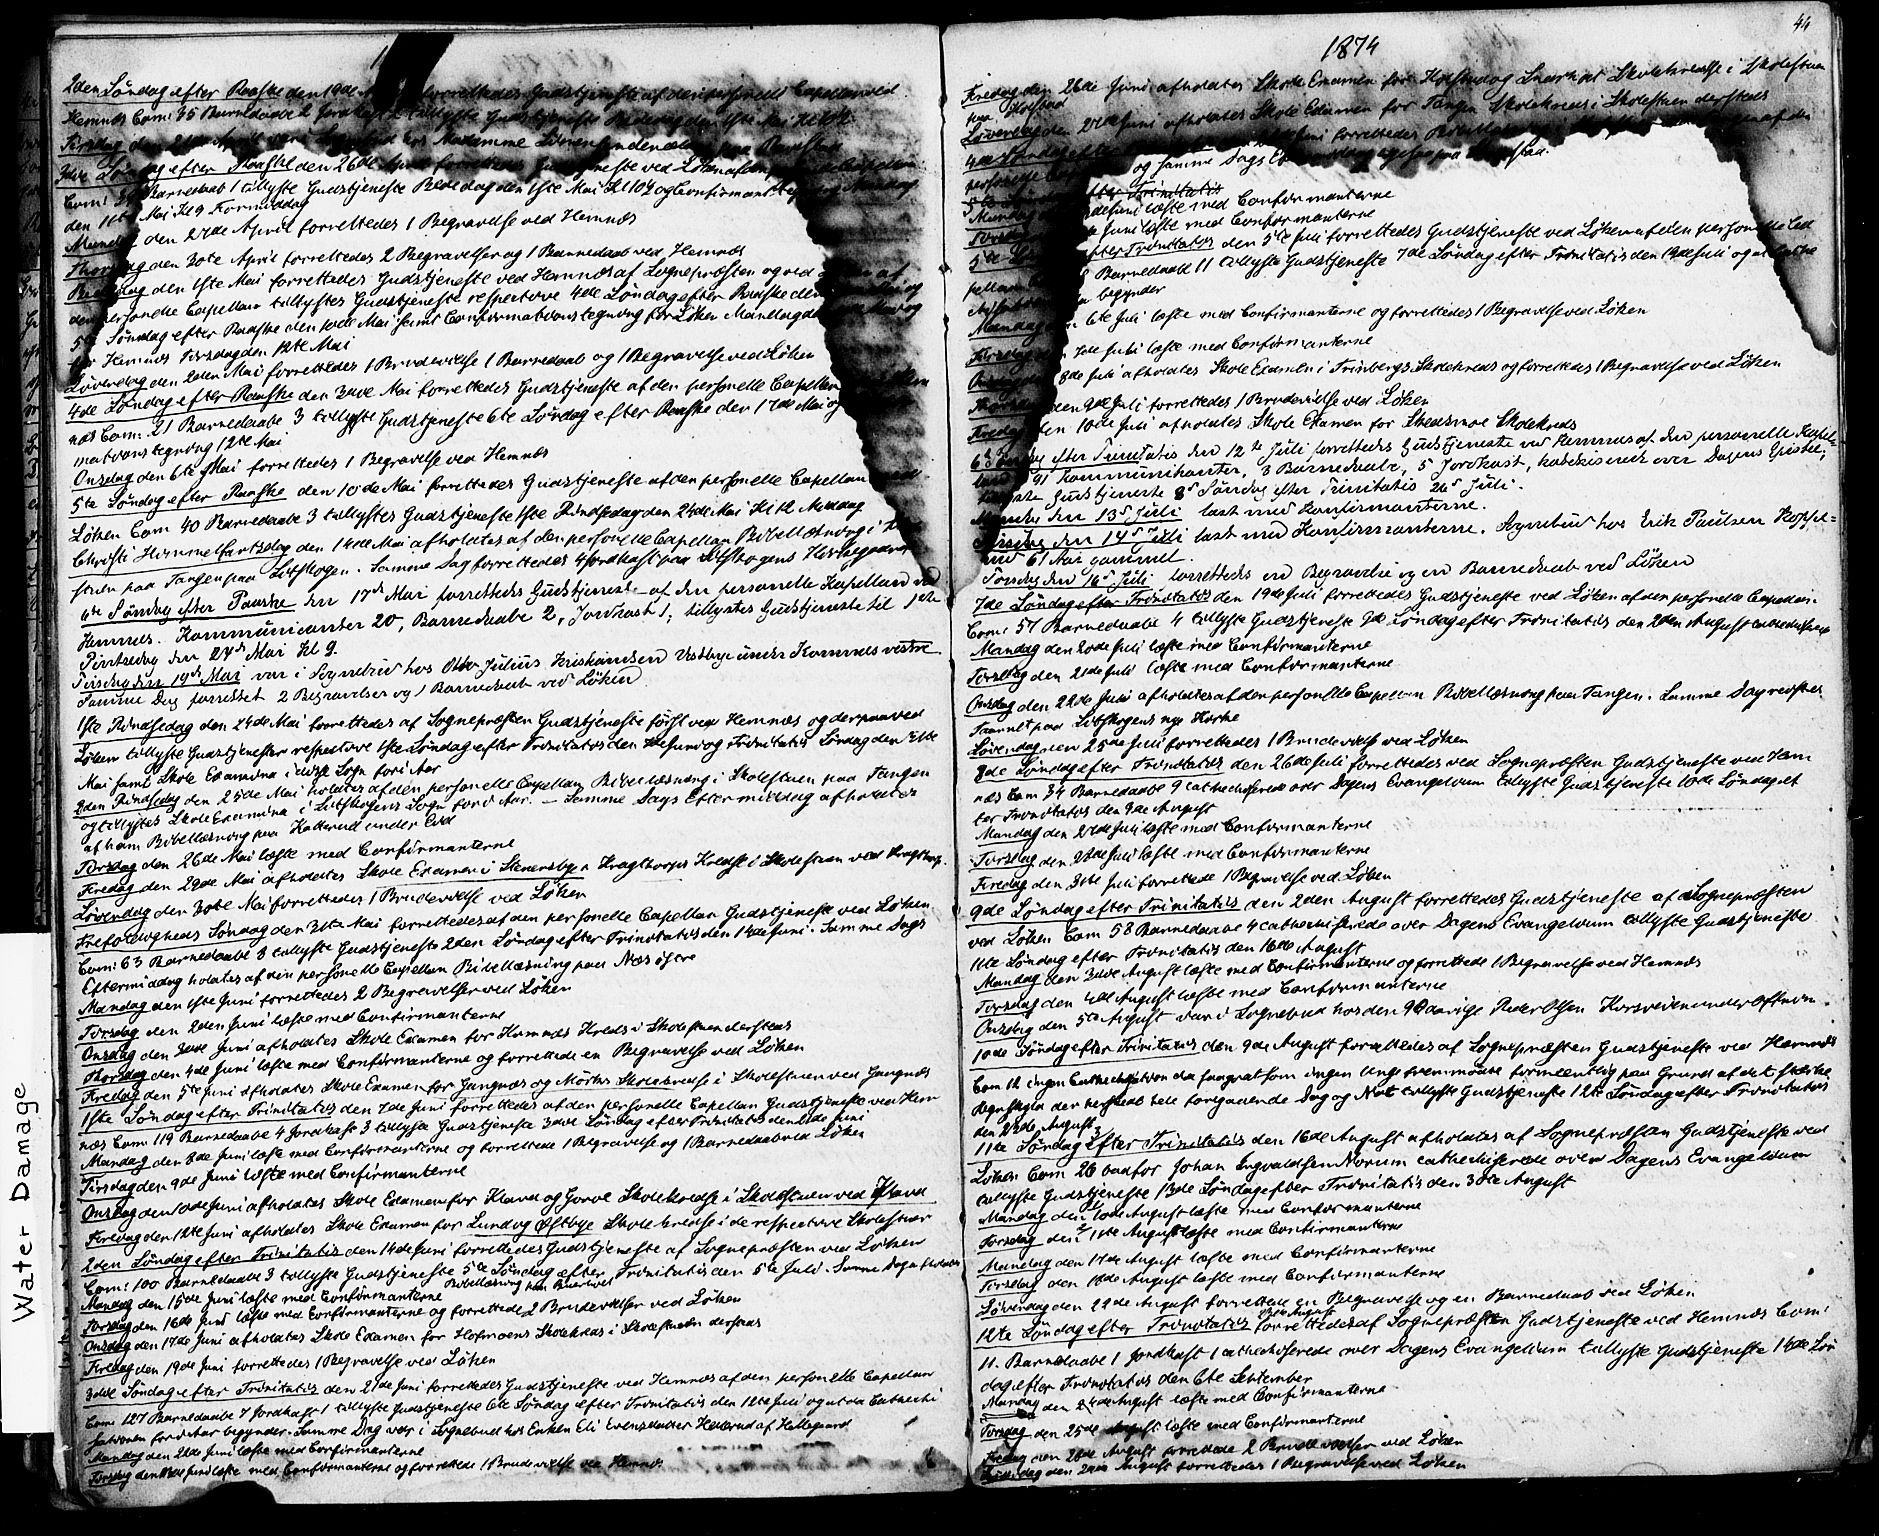 2den Søndag efter Paaske den 19de forrettedes Gudstjeneste af den personelle Capellan ved
Hemnæs Com: 35 Barnedaab 2 Jordkast 2 tillyste Gudstjeneste Bededag den 1ste Mai Kl 10½
Tirsdag den 21de April Madamme
3die Søndag efter Paaske den 26de April Gudstjeneste ved Løken af den Capellan
Com: Barnedaab 1 tillyste Gudstjeneste Bededag den 1ste Mai Kl 10½ og Confirmant
den 11te Mai Kl 9 Formiddag
Mandag den 27de April forrettedes 1 Begravelse ved Hemnæs
Thorsdag den 30te April forrettedes 2 Begravelser og 1 Barnedaab ved Hemnæs
Bededag den 1ste Mai forrettedes Gudstjeneste ved Hemnæs af Sognepræsten og ved af
den personelle Capellan tillystes Gudstjeneste respective 4de Søndag efter Paaske den
5te Søndag efter Paaske den 10de Mai samt Confirmationstegning for Løken Mandag d
for Hemnæs Tirsdag den 12te Mai
Løverdag den 2den Mai forrettedes 1 Brudevielse 1 Barnedaab og 1 Begravelse ved Løken
4de Søndag efter Paaske den 3die Mai forrettedes Gudstjeneste af den personelle Capellan
næs Com: 21 Barnedaabe 3 tillyste Gudstjeneste 6te Søndag efter Paaske den 17de Mai og
mationstegning 12te Mai
Onsdag den 6te Mai forrettedes 1 Begravelse ved Hemnæs
5te Søndag efter Paaske den 10de Mai forrettedes Gudstjeneste af den personelle Capellan
Løken Com 40 Barnedaabe 3 tillystes Gudstjeneste 1ste Pindsedag den 24de Mai Kl 12 Middag
Christi Himmelfartsdag den 14de Mai afholdtes af den personelle Capellan Bibellæsning i
stuen paa Tangen paa Setskogen. Samme Dag forrettedes 4 Jordkast paa Setskogens Kirkegaard
6te Søndag efter Paaske den 17de Mai forrettedes Gudstjeneste af den personelle Kapellan ved
Hemnæs. Kommunicanter 20, Barnedaabe 2, Jordkast 1; tillystes Gudstjeneste til 1ste
Pintsedag den 24de Mai Kl 9.
Tirsdag den 19de Mai var i Sognebud hos Otto Julius Kristiansen Vestbye under Komnæs vestre
Samme Dag forrettet 2 Begravelser og 1 Barnedaab ved Løken
1ste Pindsedag den 24de Mai forrettedes af Sognepræsten Gudstjeneste først ved Hemnæs og derpaa ved
Løken tillyste Gudstjenester respective 1ste Søndag efter Trinitatis den 7de Juni og Trinitatis Søndag den 31te
Mai samt Skole Examina i disse Sogn for i Aar
2den Pindsedag den 25de Mai holdtes af den personelle Capellan Bibellæsning i Skolestuen paa Tangen
og tillystes Skole Examina i Setskogens Sogn for i Aar. – Samme Dags Eftermiddag afholdtes
af ham Bibellæsning paa Kallerud under Eid
Tirsdag den 26de Mai læste med Confirmanterne
Fredag den 29de Mai afholdtes Skole Examen i Steensby & Kragthorps Kreds i Skolestuen ved Kragthorp.
Løverdag den 30te Mai forrettedes 1 Brudevielse ved Løken
Trefoldigheds Søndag den 31te Mai forrettedes af den personelle Capellan Gudstjeneste ved Løken
Com: 63 Barnedaabe 8 tillyste Gudstjeneste 2den Søndag efter Trinitatis den 14de Juni. Samme Dags
Eftermiddag holdtes af den personelle Capellan Bibellæsning paa Næs østre
Mandag den 1ste Juni forrettedes 2 Begravelser ved Løken
Tirsdag den 2den Juni læste med Confirmanterne
Onsdag den 3die Juni afholdtes Skole Examen for Komnæs Kreds i Skolestuen dersteds
Thorsdag den 4de Juni læste med Confirmanterne og forrettede en Begravelse ved Løken
Fredag den 5te Juni afholdtes Skole Examen for Gangnæs og Mørks Skolekredse i Skolestuen ved Gangnæs
1ste Søndag efter Trinitatis den 7de Juni forrettedes af den personelle Capellan Gudstjeneste ved Hem
næs Com: 119 Barnedaabe 4 Jordkast 3 tillyste Gudstjeneste 3die Søndag efter Trinitatis den 21de Juni
Mandag den 8de Juni læste med Confirmanterne og forrettede 1 Begravelse og 1 Barnedaab ved Løken
Tirsdag den 9de Juni læste med Confirmanterne
Onsdag den 10de Juni afholdtes Skole Examen for Kland og Gorve Skolekredse i Skolestuen ved Kland
Fredag den 12te Juni afholdtes Skole Examen for Lund og Østbye Skolekredse i de respective Skolestuer
2den Søndag efter Trinitatis den 14de Juni forrettedes Gudstjeneste af Sognepræsten ved Løken
Com: 100 Barnedaabe 3 tillyste Gudstjeneste 5te Søndag efter Trinitatis den 5te Juli. Samme Dag afholdtes
Bibellæsning paa
Mandag den 15de Juni læste med Confirmanterne
Tirsdag den 16de Juni læste med Confirmanterne og forrettede 2 Brudevielser ved Løken
Onsdag den 17de Juni afholdtes Skole Examen for Hofmoens Skolekreds i Skolestuen dersteds
Fredag den 19de Juni forrettedes 1 Begravelse ved Løken
3die Søndag efter Trinitatis den 21de Juni forrettedes Gudstjeneste ved Hemnæs af den personelle Capellan
Com: 127 Barnedaabe 7 Jordkast 1 tillyste Gudstjeneste 6te Søndag efter Trinitatis den 12te Juli og at da Catechi
sationen for i Aar begynder. Samme Dag var i Sognebud hos Enken Eli Evensdatter Hellerud af Hillegaard
Mandag den 22de Juni læste med Confirmanterne
Tirsdag den 23de Juni læste med Confirmanterne og forrettede 1 Brudevielse ved Hemnæs
44
1874
Fredag den 26de Juni afholdtes Skole Examen for Kolstad og Skolekredse i Skolestuen
paa Kolstad
Løverdag den 27de Juni afholdtes Skole Examen for Tangen Skolekreds i Skolestuen dersteds
4de Søndag Juni forrettedes af den
personelle og samme Dags
5te efter Trinitatis
Mandag Juni læste med Confirmanterne
Tirsdag Juni læste med Confirmanterne
5te efter Trinitatis den 5te Juli forrettedes Gudstjeneste ved Løken af den personelle Ca
pellan Barnedaabe 11 tillyste Gudstjeneste 7de Søndag efter Trinitatis den 19de Juli og at
begynder
Mandag 6te Juli læste med Confirmanterne og forrettedes 1 Begravelse ved Løken
Tirsdag 7de Juli læste med Confirmanterne
Onsdag 8de Juli afholdtes Skole Examen i Skolekreds og forrettedes 1 Begravelse ved Løken
Thorsdag den 9de Juli forrettedes 1 Brudevielse ved Løken
Fredag den 10de Juli afholdtes Skole Examen for Skedsmoe Skolekreds
6te Søndag efter Trinitatis den 12te Juli forrettedes Gudstjeneste ved Hemnæs af den personelle Kapel-
lan; 91 Kommunikanter, 3 Barnedaabe, 5 Jordkast, katekiserede over Dagens Epistel;
Gudstjeneste 8de Søndag efter Trinitatis 26de Juli.
Mandag den 13de Juli læst med Konfirmanterne.
Tirsdag den 14de Juli læst med Konfirmanterne. Sognebud hos Erik Paulsen
61 Aar gammel.
Torsdag den 16de Juli forrettedes en Begravelse og en Barnedaab ved Løken
7de Søndag efter Trinitatis den 19de Juli forrettedes Gudstjeneste ved Løken af den personelle Capellan
Com: 57 Barnedaabe 4 tillyste Gudstjeneste 9de Søndag efter Trinitatis den 2den August
Mandag den 20de Juli læste med Confirmanterne
Tirsdag den 21de Juli læste med Confirmanterne
Onsdag den 22de Juli afholdtes af den personelle Capellan Bibellæsning paa Tangen. Samme Dag reistes
Taarnet paa Setskogens nye Kirke
Løverdag den 25de Juli forrettedes 1 Brudevielse ved Løken
8de Søndag efter Trinitatis den 26de Juli forrettedes ved Sognepræsten Gudstjeneste ved Hem
næs Com 34 Barnedaabe 9 catechiserede over Dagens Evangelium tillyste Gudstjeneste 10de Søndag ef
ter Trinitatis den 9de August
Mandag den 27de Juli læste med Confirmanterne
Tirsdag den 28de Juli læste med Confirmanterne
Fredag den 31te Juli forrettede 1 Begravelse ved Løken
9de Søndag efter Trinitatis den 2den August forrettedes Gudstjeneste af Sognepræsten
ved Løken Com 58 Barnedaabe 4 catechiserede over Dagens Evangelium tillyste Gudstjeneste
11te Søndag efter Trinitatis den 16de August
Mandag den 3die August læste med Confirmanterne og forrettede 1 Begravelse ved Hemnæs
Tirsdag den 4de August læste med Confirmanterne
Onsdag den 5te August var i Sognebud hos den 90aarige Peder Olsen Korsveien under
10de Søndag efter Trinitatis den 9de August forrettedes af Sognepræsten Gudstjeneste ved Hemnæs
Com 12 ingen Cathechisation da saagodtsom ingen Ungdom mødte formodentlig paa Grund af det stærke
Regn der herskede hele foregaaende Dag og Nat tillyste Gudstjeneste 12te Søndag efter Trinitatis
den 23de August
11te Søndag efter Trinitatis den 16de August afholdtes af Sognepræsten Gudstjeneste ved
Løken Com: 26 bad for Johan Ingvaldsen Norum cathechiserede over Dagens Evangelium
tillyste Gudstjeneste 13de Søndag efter Trinitatis den 30te August
Mandag den 10de August læste med Confirmanterne
Tirsdag den 11te August læste med Confirmanterne
Mandag den 17de August læste med Confirmanterne
Tirsdag den 18de August læste med Confirmanterne
Løverdag den 22de August forrettede en Begravelse og en Barnedaab ved Løken
12te Søndag efter Trinitatis 23de August forrettedes af Sognepræsten Gudstjeneste ved Hemnæs Com:
11. Barnedaabe 1 Jordkast 1 catechiserede over Dagens Evangelium tillyste Gudstjeneste 14de Søn
dag efter Trinitatis den 6te September
Mandag den 24de August læste med Confirmanterne
Tirsdag den 25de August læste med Confirmanterne
Fredag den 28de August forrettede 2 Brudevielser ved Løken
Løverdag den 29de August forrettedes 1 Begravelse ved Løken
Water Damage